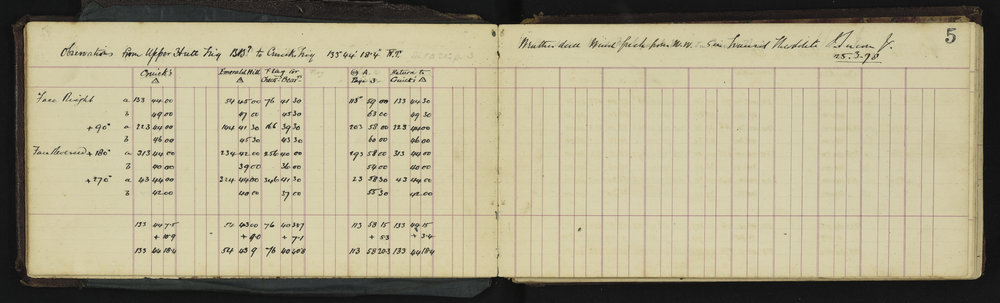 Observations from Upper Hutt Trig to Cruick Trig 133 44 18.4 N.T.
Weather dull Wind fresh from N.W. 5 in Theodolite
25.3.98
5
Cruick's Emerald Hill Flag for @ A. Return to
△ △ Page 3. Cruick's △
Face Right a 133 44 00 54 45 00 76 41 30 113 59 00 133 44 30
b 49 00 47 00 45 30 63 00 49 30
+90° a 223 44 00 144 41 30 166 39 30 203 58 00 223 44 00
b 46 00 45 30 43 30 60 00 46 00
Face Reversed +180° a 313 44 00 234 42 00 256 40 00 293 58 00 313 44 00
b 40 00 39 00 36 00 54 00 40 00
+270° a 43 44 00 324 44 00 346 41 30 23 58 30 43 44 00
b 42 00 40 00 37 00 55 30 42 00
133 44 7.5 54 43 00 76 40 33.7 113 58 15 133 44 15
+ 10.9 + 9.0 + 7.1 + 5.3 + 3.4
133 44 18.4 54 43 9 76 40 40.8 113 58 20.3 133 44 18.4